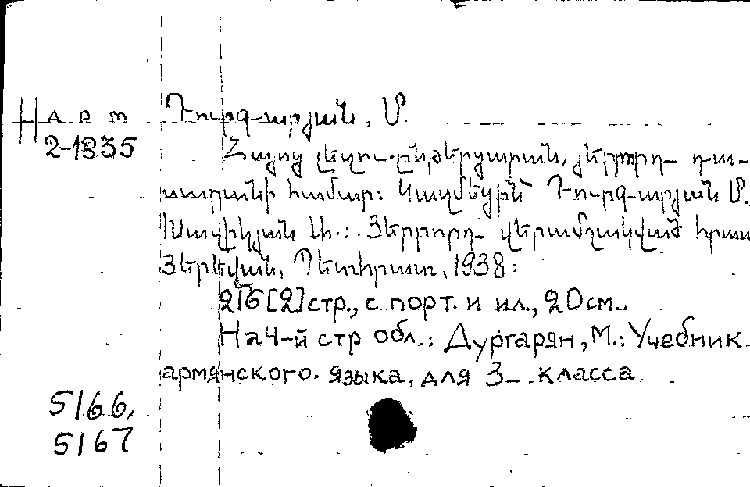 Нарт Դուրգարյան, Մ.
2-1335
Հայոց լեզու. ընթերցարան, յերրորդ դա-
սարանի համար: Կազմեցին Դուրգարյան Մ.
Սաղիկյան Ս.: Յերրորդ վերամշակված հրատ
Յերևան, Պետհրատ, 1938:
216[2]стр., с порт. и ил., 20см..
На 4-й стр обл.: Дургарян, М.: Учебник
армянского. языка, для 3- класса.
5166,
5167